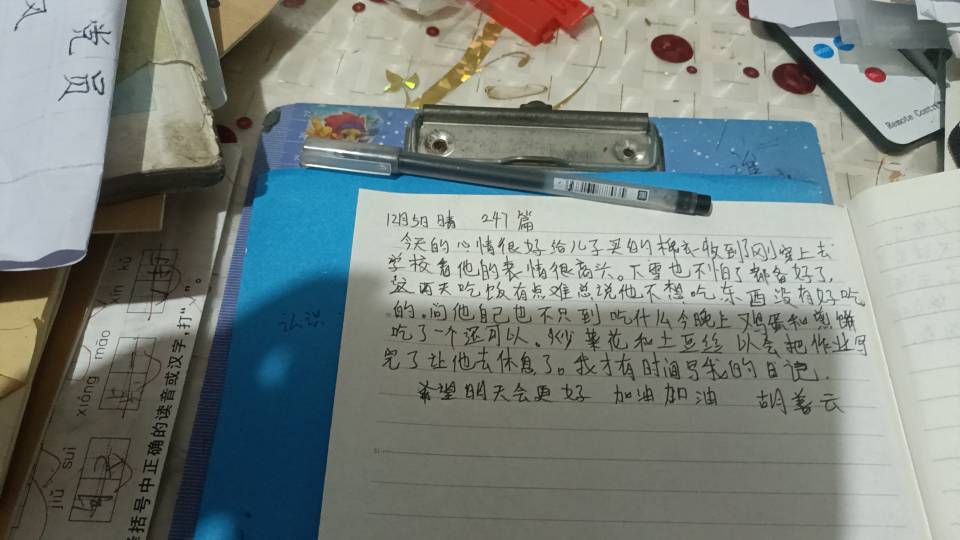 12月5日 晴 247篇
今天的心情很好给儿子买的棉衣收到了刚穿上去
学校看他的表情很高兴。下雪也不怕了都备好了,
这两天吃饭有点难总说他不想吃东西没有好吃
的。问他自己也不只到吃什么今晚上 鸡蛋和 饼
吃了一个还可以。炒菜花和土豆丝 以会把作业写
完了让他去休息了。我才有时间写我的日记.
希望明天会更好 加油加油 胡善云
认识
谁
党员
Remote Control
xìn
xū
xióng
mào
jiǔ
suì
括号中正确的读音或汉字,打“√”。